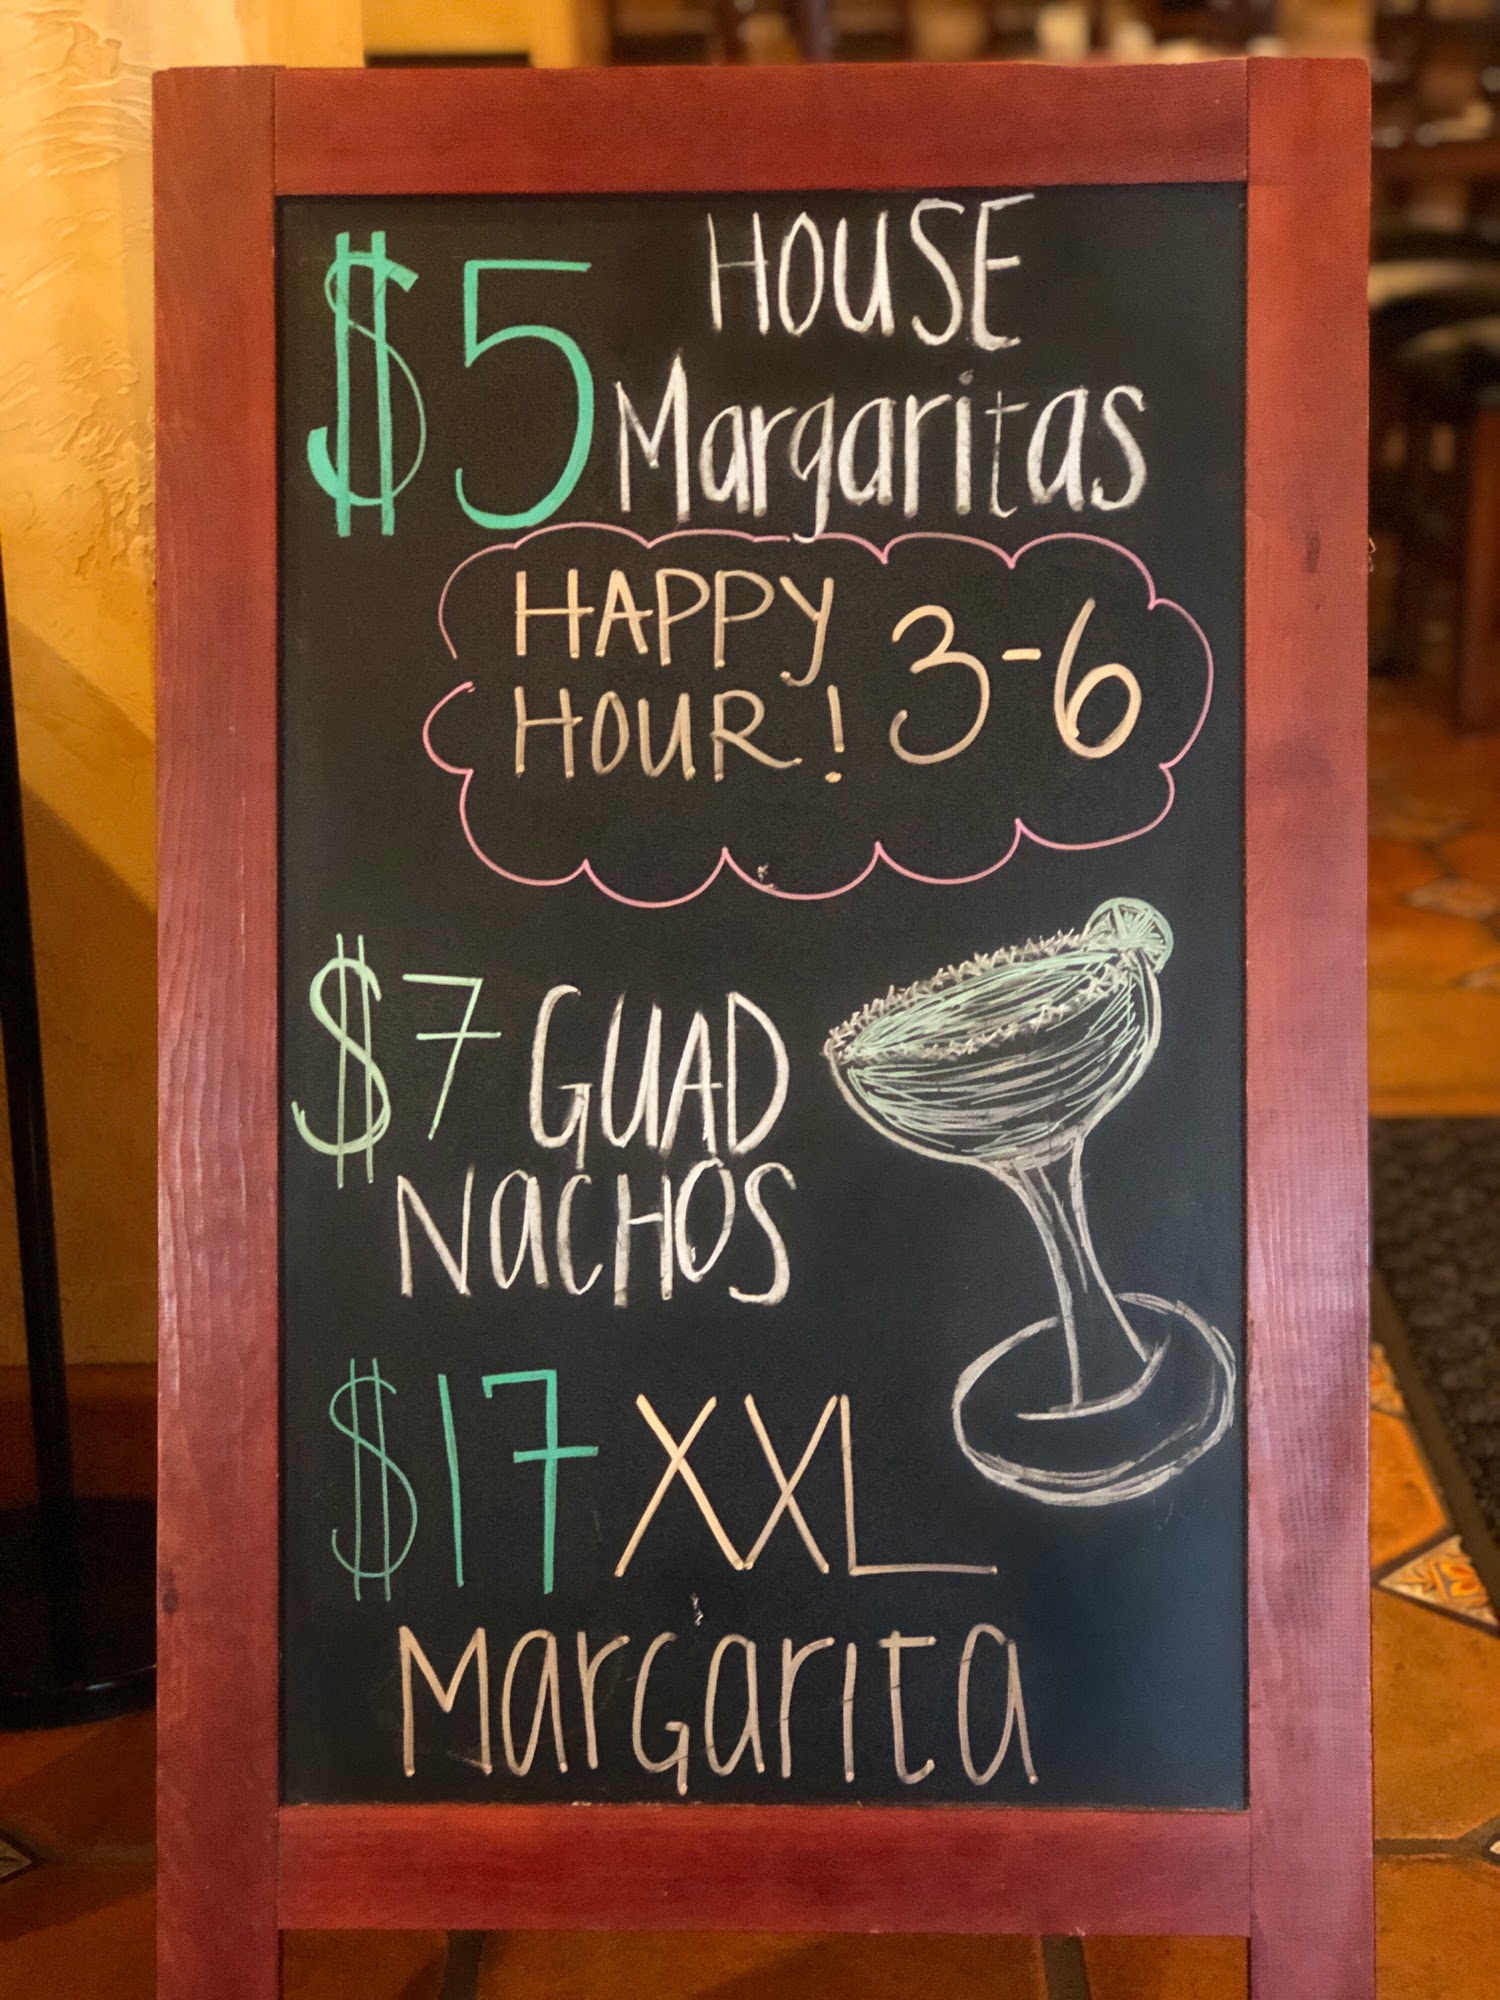 $5 HOUSE
Margaritas
HAPPY
HOUR! 3-6
$7 GUAD
NACHOS
$17 XXL
MARGARITA